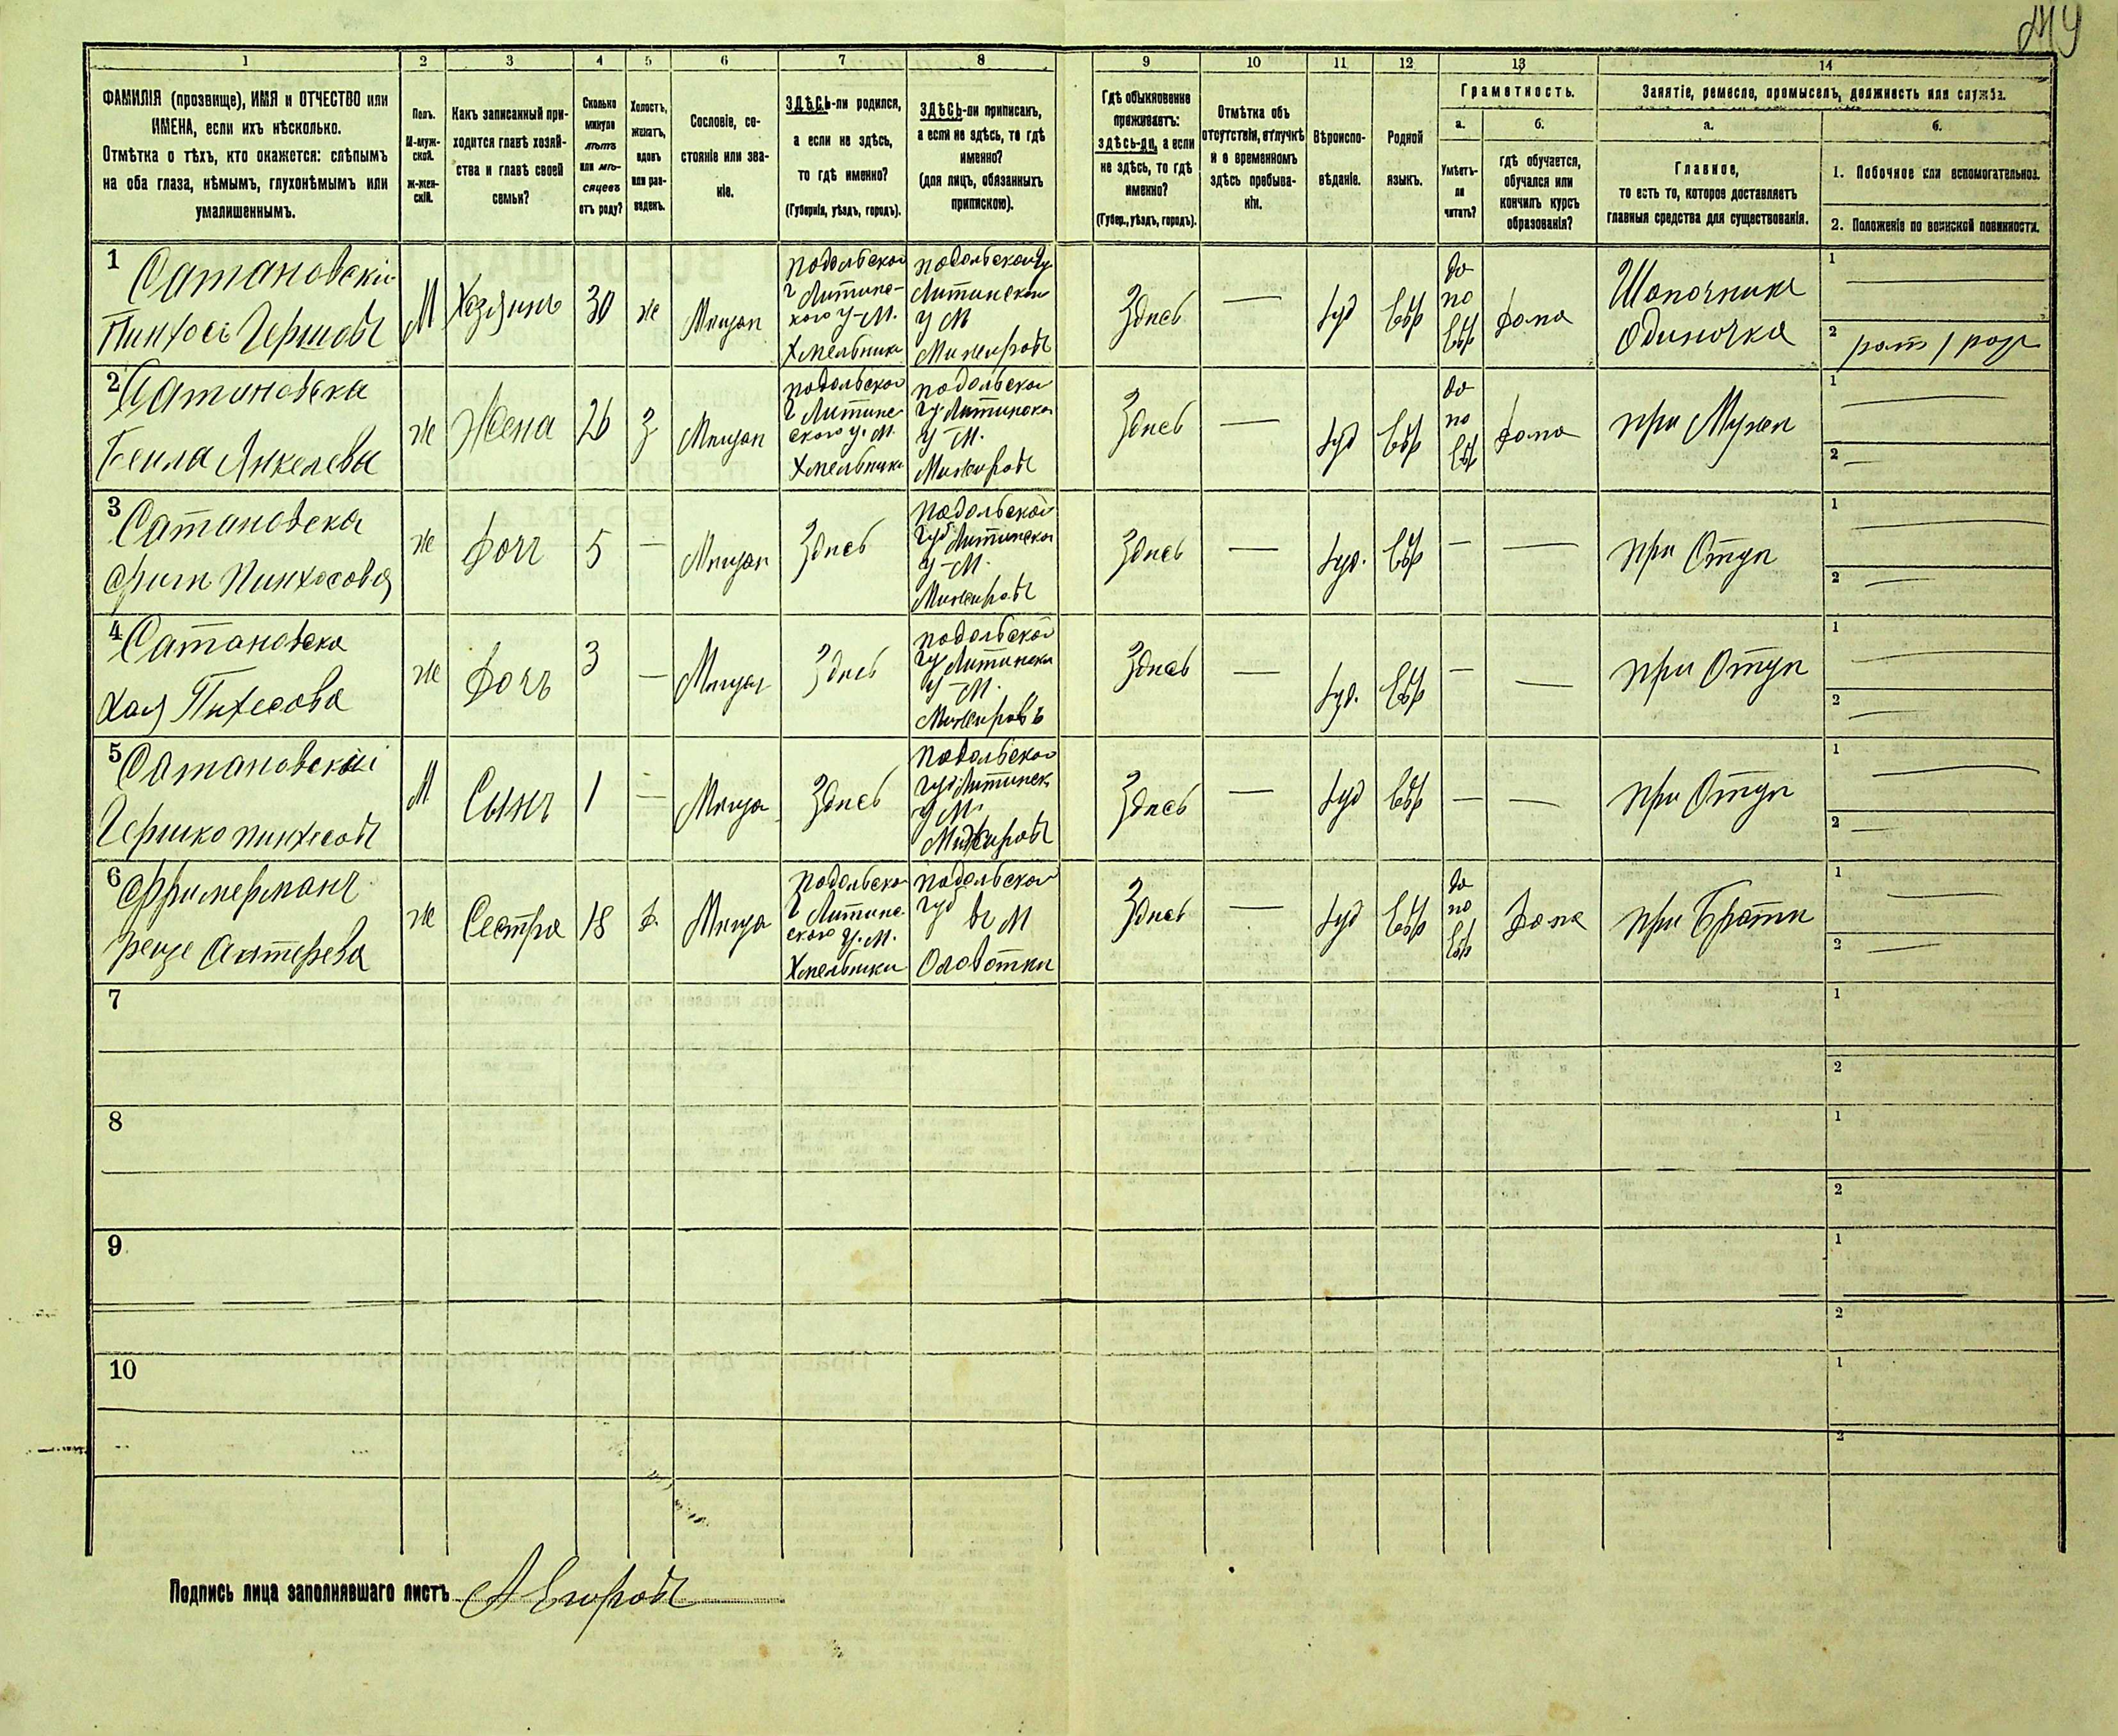 1
2
3
4
5
6
7
8
9
10
11
12
13
14
ФАМИЛІЯ (прозвище), ИМЯ и ОТЧЕСТВО или
ИМЕНА, если ихъ нѣсколько.
Отмѣтка о тѣхъ, кто окажется: слѣпымъ
на оба глаза, нѣмымъ, глухонѣмымъ или
умалишеннымъ.
Полъ.
М-муж-
ской.
Ж-жен-
скій.
Какъ записанный при-
ходится главѣ хозяй-
ства и главѣ своей
семьи?
Сколько
минуло
лѣтъ
или мѣ-
сяцевъ
отъ роду?
Холостъ,
женатъ,
вдовъ
или раз-
веденъ.
Сословіе, со-
стояніе или зва-
ніе.
ЗДѢСЬ-ли родился,
а если не здѣсь,
то гдѣ именно?
(Губернія, уѣздъ, городъ).
ЗДѢСЬ-ли приписанъ,
а если не здѣсь, то гдѣ
именно?
(для лицъ, обязанныхъ
припискою).
Гдѣ обыкновенно
проживаетъ:
здѣсь-ли, а если
не здѣсь, то гдѣ
именно?
(Губер., уѣздъ, городъ).
Отмѣтка объ
отсутствіи, отлучкѣ
и о временномъ
здѣсь пребыва-
ніи.
Вѣроиспо-
вѣданіе.
Родной
языкъ.
Грамотность.
а.
Умѣетъ-
ли
читать?
б.
гдѣ обучается,
обучался или
кончилъ курсъ
образованія?
Занятіе, ремесло, промыселъ, должность или служба.
а.
Главное,
то есть то, которое доставляетъ
главныя средства для существованія.
б.
1. Побочное или вспомогательное.
2. Положеніе по воинской повинности.
1
Сатановскій
Пинхосъ Гершовъ
М
Хозяинъ
30
ж
Мѣщан
Подольской
г Литинс-
кого у-М.
Хмельника
Подольской Гу
Литинской
у М
Межировъ
Здѣсь
—
Іуд
Евр
да
по
Евр
Дома
Шапочника
Одиночка
1
2
рат 1 разр
2
Сатановска
Бейла Янкелева
ж
Жена
26
З
Мѣщан
Подольской
г Литинс
ского у. М.
Хмельника
Подольской
гу Литинской
у-М.
Межировъ
Здѣсь
—
Іуд
Евр
да
по
Евр
Дома
При Мужѣ
1
2 —
3
Сатановска
Пинхосова
ж
Дочь
5
—
Мѣщан
Здѣсь
Подольской
губ Литинской
у-М.
Межировъ
Здѣсь
—
Іуд.
Евр
—
—
При Отцѣ
1
2 —
4
Сатановска
Хая Пинхесова
ж
Дочь
3
—
Мѣщан
Здѣсь
Подольской
гу Литински
у-М.
Межировъ
Здѣсь
—
Іуд.
Евр
—
—
При Отцѣ
1
2
5
Сатановскій
Гершко Пинхесовъ
М
Сынъ
1
—
Мѣща
Здѣсь
Подольской
губ Литинск
у М.
Межировъ
Здѣсь
—
Іуд
Евр
—
—
При Отцѣ
1
2 —
6
ж
Сестра
18
Д.
Мѣща
Подольской
г Литинс
ского у. М.
Хмельники
Подольской
губ
въ М
Здѣсь
—
Іуд
Евр
да
по
Евр
Дома
При Братѣ
1
2
7
1
2
8
1
2
9
1
2
10
1
2
Подпись лица заполнявшаго листъ